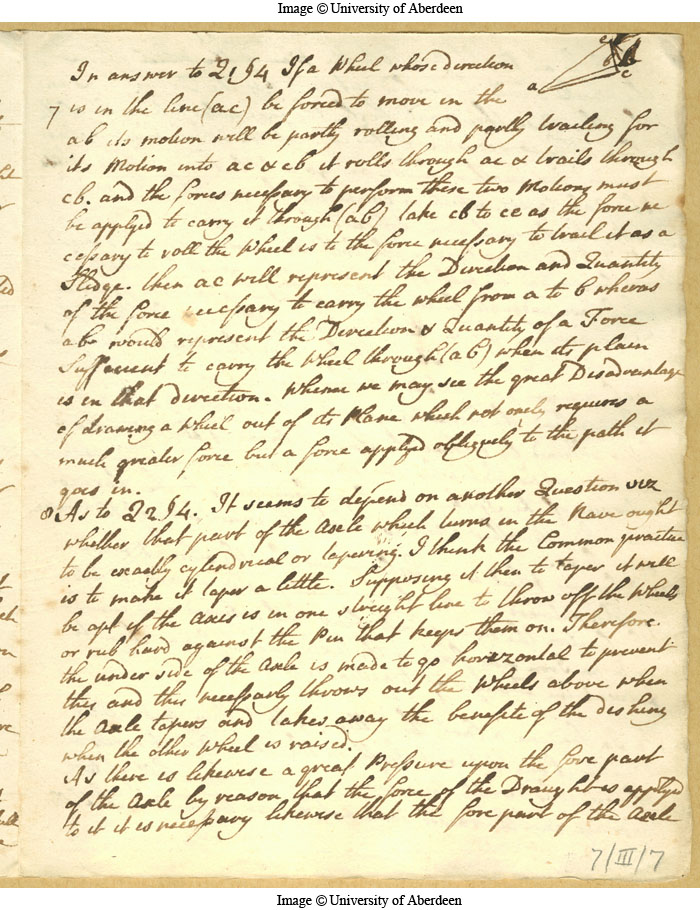 Image © University of Aberdeen
In answer to Q1 §4 If a Wheel whose direction
7 is in the line (ac) be forced to move in the
ab its motion will be partly rolling and partly trailing for
its Motion into ac & cb it rolls through ac & trails through
cb. and the forces necessary to perform these two Motions must
be applyed to carry it through (ab) take cb to ce as the force ne
cessary to roll the Wheel is to the force necessary to trail it as a
Sledge. then ae will represent the Direction and Quantity
of the force necessary to carry the wheel from a to b wheras
abe would represent the Direction & Quantity of a Force
Suffecient to carry the Wheel through (ab) when its plain
is in that direction. Whence we may see the great Disadvantage
of drawing a Wheel out of its Plane which not only requires a
much greater force but a force applyed obliquely to the path it
goes in.
8 As to Q2 §4. It seems to depend on another Question viz
whether that part of the Axle which turns in the Nave ought
to be exactly cylindrical or tapering. I think the Common practice
is to make it taper a little. Supposing it then to taper it will
be apt if the Axis is in one streight line to throw off the Wheels
or rub hard against the Pin that keeps them on. Therefore
the under side of the Axle is made to go horizontal to prevent
this and this necessarly throws out the Wheels above when
the Axle tapers and takes away the benefite of the dishing
when the other wheel is raised.
As there is likewise a great Pressure upon the fore part
of the Axle by reason that the force of the Draught is applyed
to it it is necessary likewise that the fore part of the Axle
7/III/7
Image © University of Aberdeen